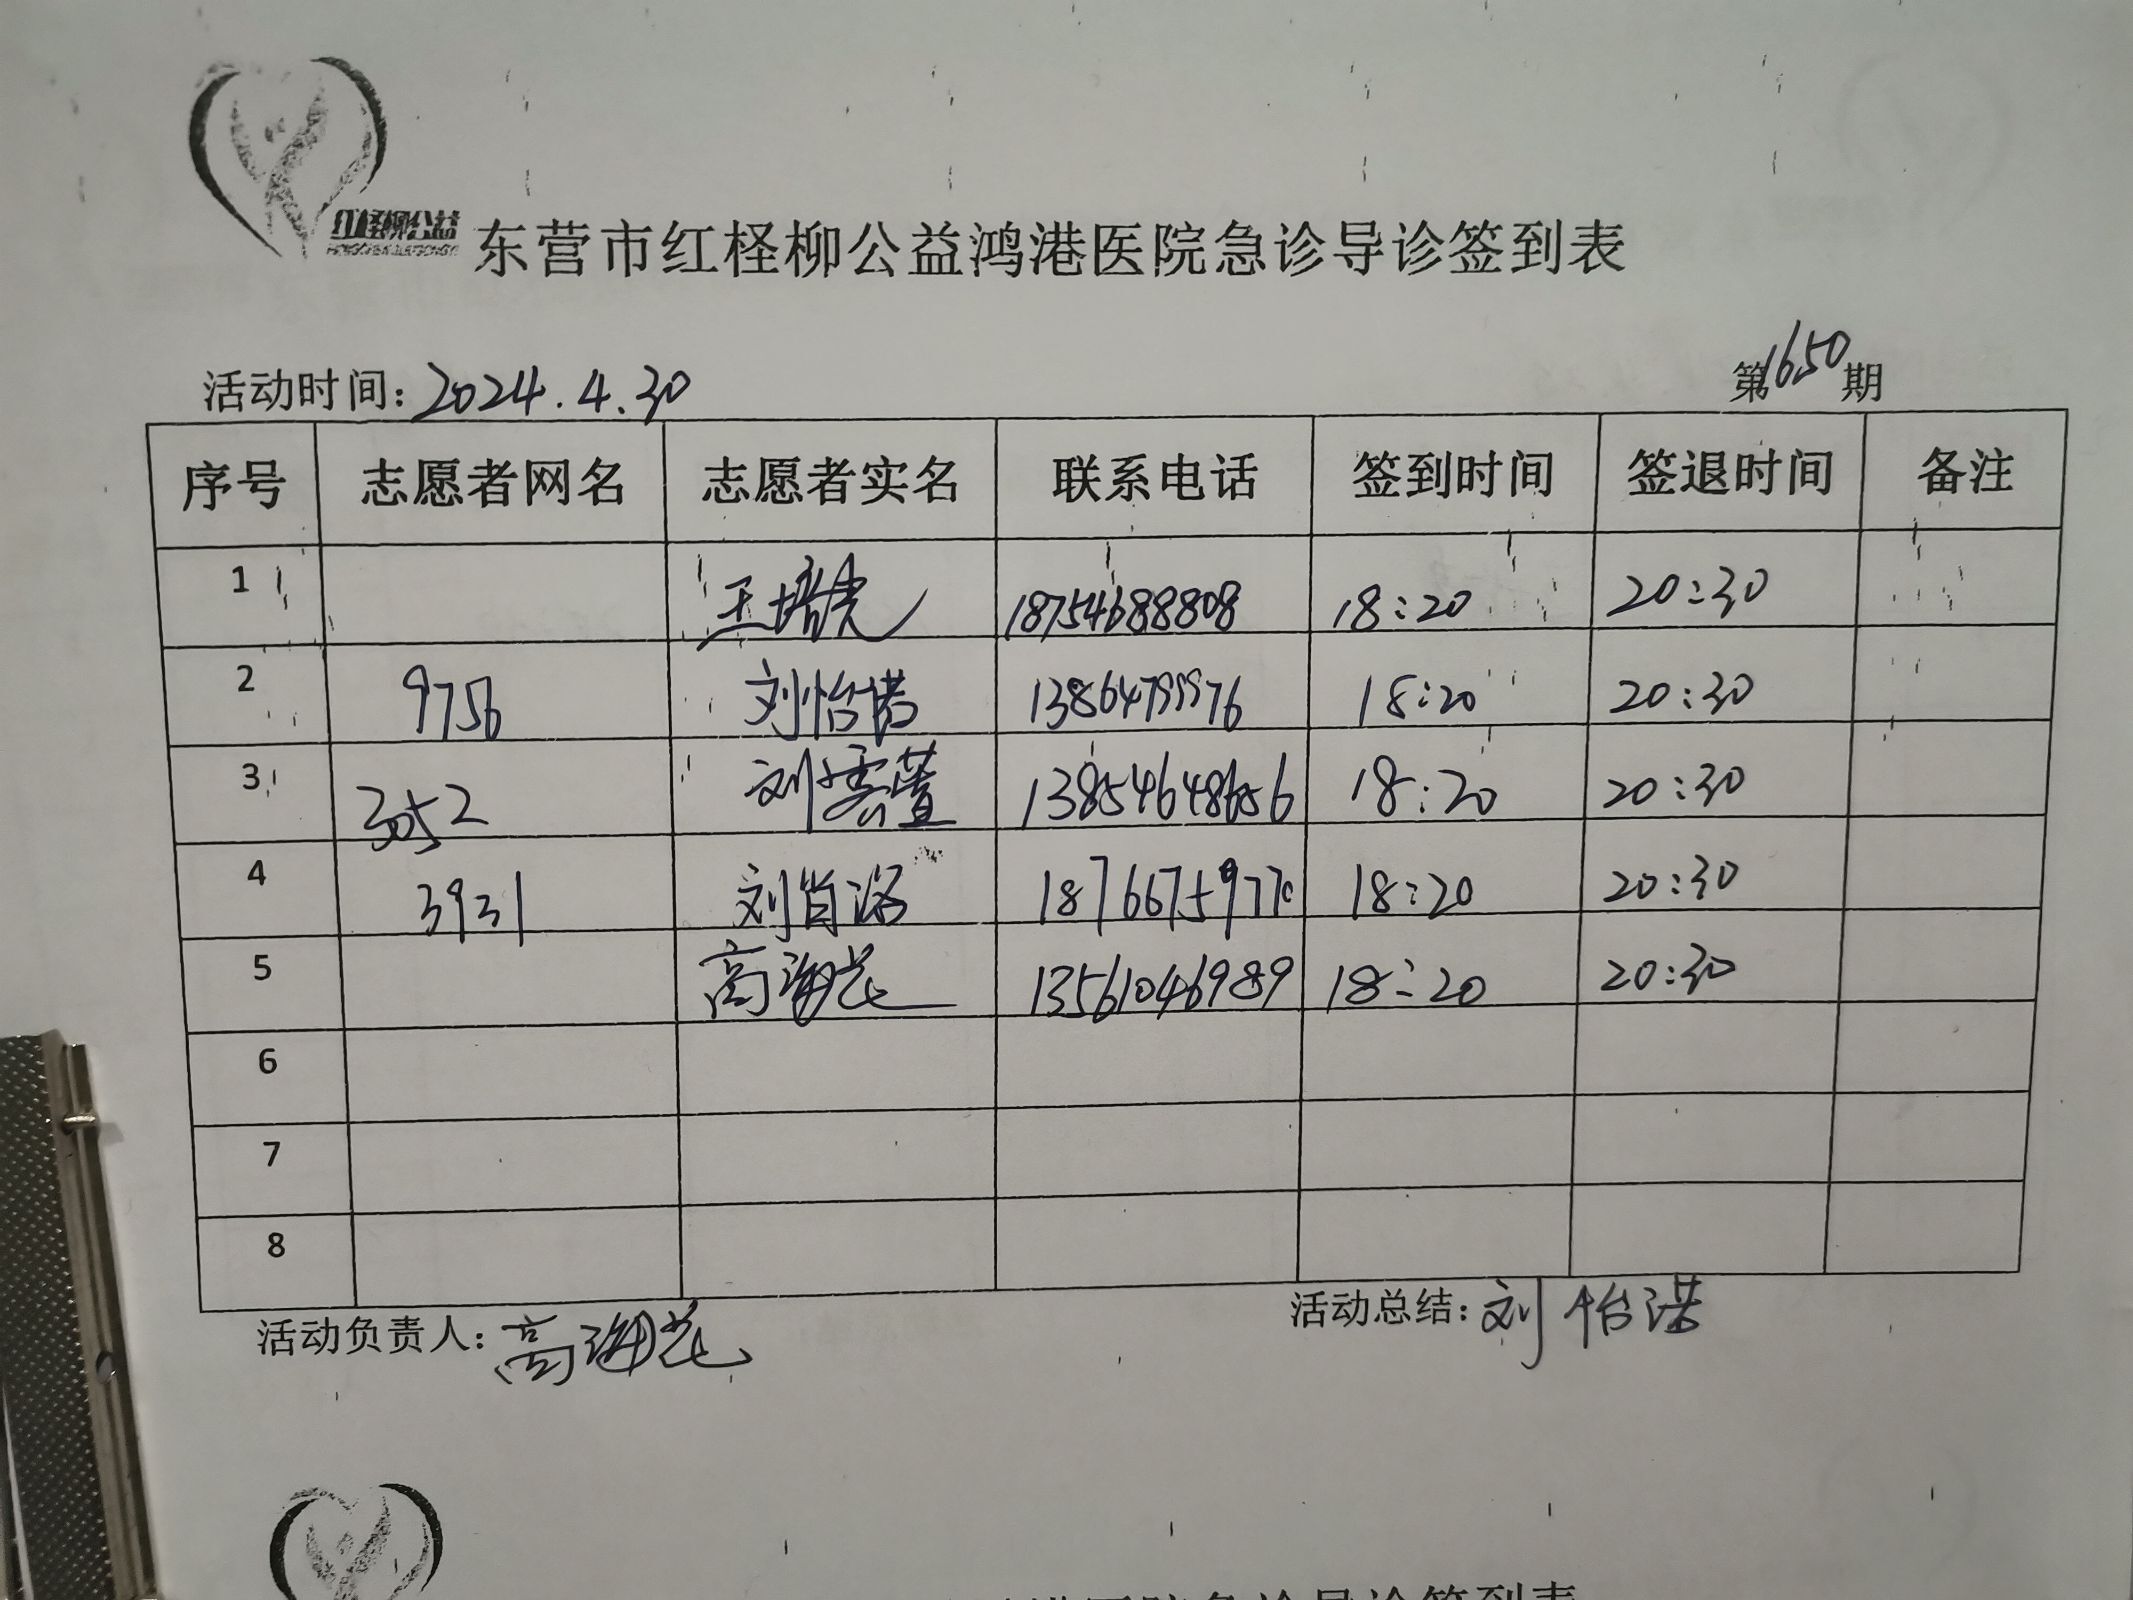 红柽柳公益
东营市红柽柳公益鸿港医院急诊导诊签到表
活动时间：2024.4.30 第1650期
序号 志愿者网名 志愿者实名 联系电话 签到时间 签退时间 备注
1 王培虎 18754688808 18:20 20:30
2 9756 刘怡诺 13864799976 18:20 20:30
3 3052 刘雲萱 13854648656 18:20 20:30
4 3931 刘肖潞 18766759770 18:20 20:30
5 高海花 13561046989 18:20 20:30
6
7
8
活动负责人：高海花 活动总结：刘怡诺
港医院急诊导诊签到表